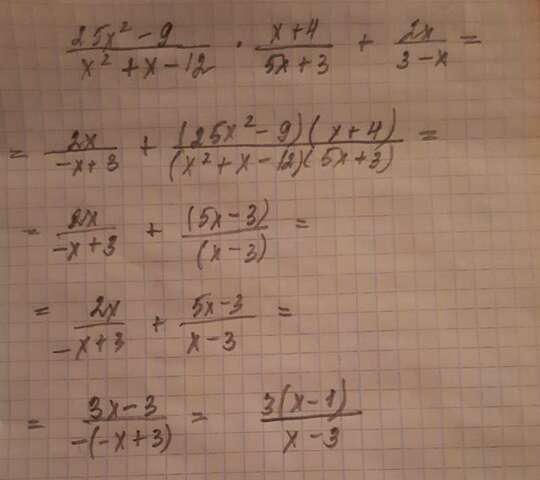 (25x² - 9)/(x² + x - 12) · (x+4)/(5x+3) + 2x/(3-x) =
= 2x/(-x+3) + ((25x² - 9)(x+4))/((x² + x - 12)(5x+3)) =
= 2x/(-x+3) + (5x-3)/(x-3) =
= 2x/(-x+3) + (5x-3)/(x-3) =
= (3x-3)/(-(-x+3)) = 3(x-1)/(x-3)